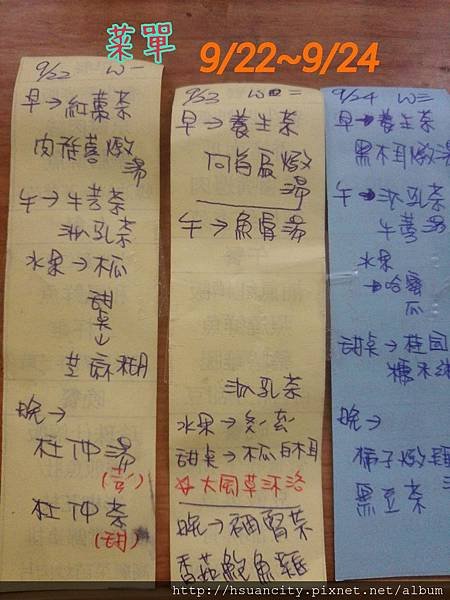 菜單 9/22~9/24
9/22 W一
早→紅棗茶
肉蓯蓉燉
湯
午→牛蒡茶
泌乳茶
水果→木瓜
甜
桌
↓
芝麻糊
晚→
杜仲湯
杜仲茶
(甜)
9/23 W二
早→養生茶
何首烏燉
湯
午→魚湯
泌乳茶
水果→
甜桌→木瓜白木耳
大風草沐浴
晚→茶
香菇鮑魚雞
9/24 W三
早→養生茶
黑木耳燉湯
午→泌乳茶
牛蒡湯
水果
→哈蜜
瓜
甜桌→桂圓
糯米
晚→
柿子燉雞
黑豆茶
http://hsuancity.pixnet.net/album